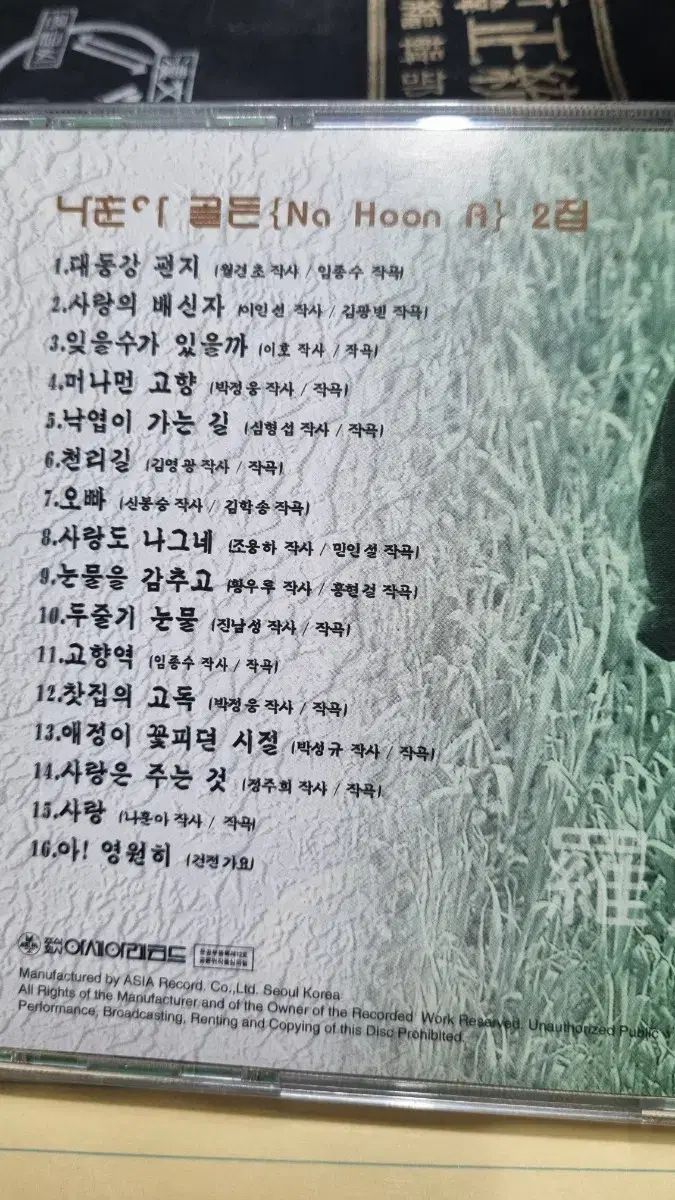 나훈아 골든{Na Hoon A} 2집
1.대동강 편지 (월견초 작사 / 임종수 작곡)
2.사랑의 배신자 (이인선 작사 / 김광빈 작곡)
3.잊을수가 있을까 (이호 작사 / 작곡)
4.머나먼 고향 (박정웅 작사 / 작곡)
5.낙엽이 가는 길 (심형섭 작사 / 작곡)
6.천리길 (김영광 작사 / 작곡)
7.오빠 (신봉승 작사 / 김학송 작곡)
8.사랑도 나그네 (조용하 작사 / 민인설 작곡)
9.눈물을 감추고 (황우루 작사 / 홍현걸 작곡)
10.두줄기 눈물 (진남성 작사 / 작곡)
11.고향역 (임종수 작사 / 작곡)
12.찻집의 고독 (박정웅 작사 / 작곡)
13.애정이 꽃피던 시절 (박성규 작사 / 작곡)
14.사랑은 주는 것 (정주희 작사 / 작곡)
15.사랑 (나훈아 작사 / 작곡)
16.아! 영원히 (건전가요)
羅
주식회사 아세아레코드
Manufactured by ASIA Record. Co.,Ltd. Seoul Korea
All Rights of the Manufacturer and of the Owner of the Recorded Work Reserved. Unauthorized Public
Performance, Broadcasting, Renting and Copying of this Disc Prohibited.